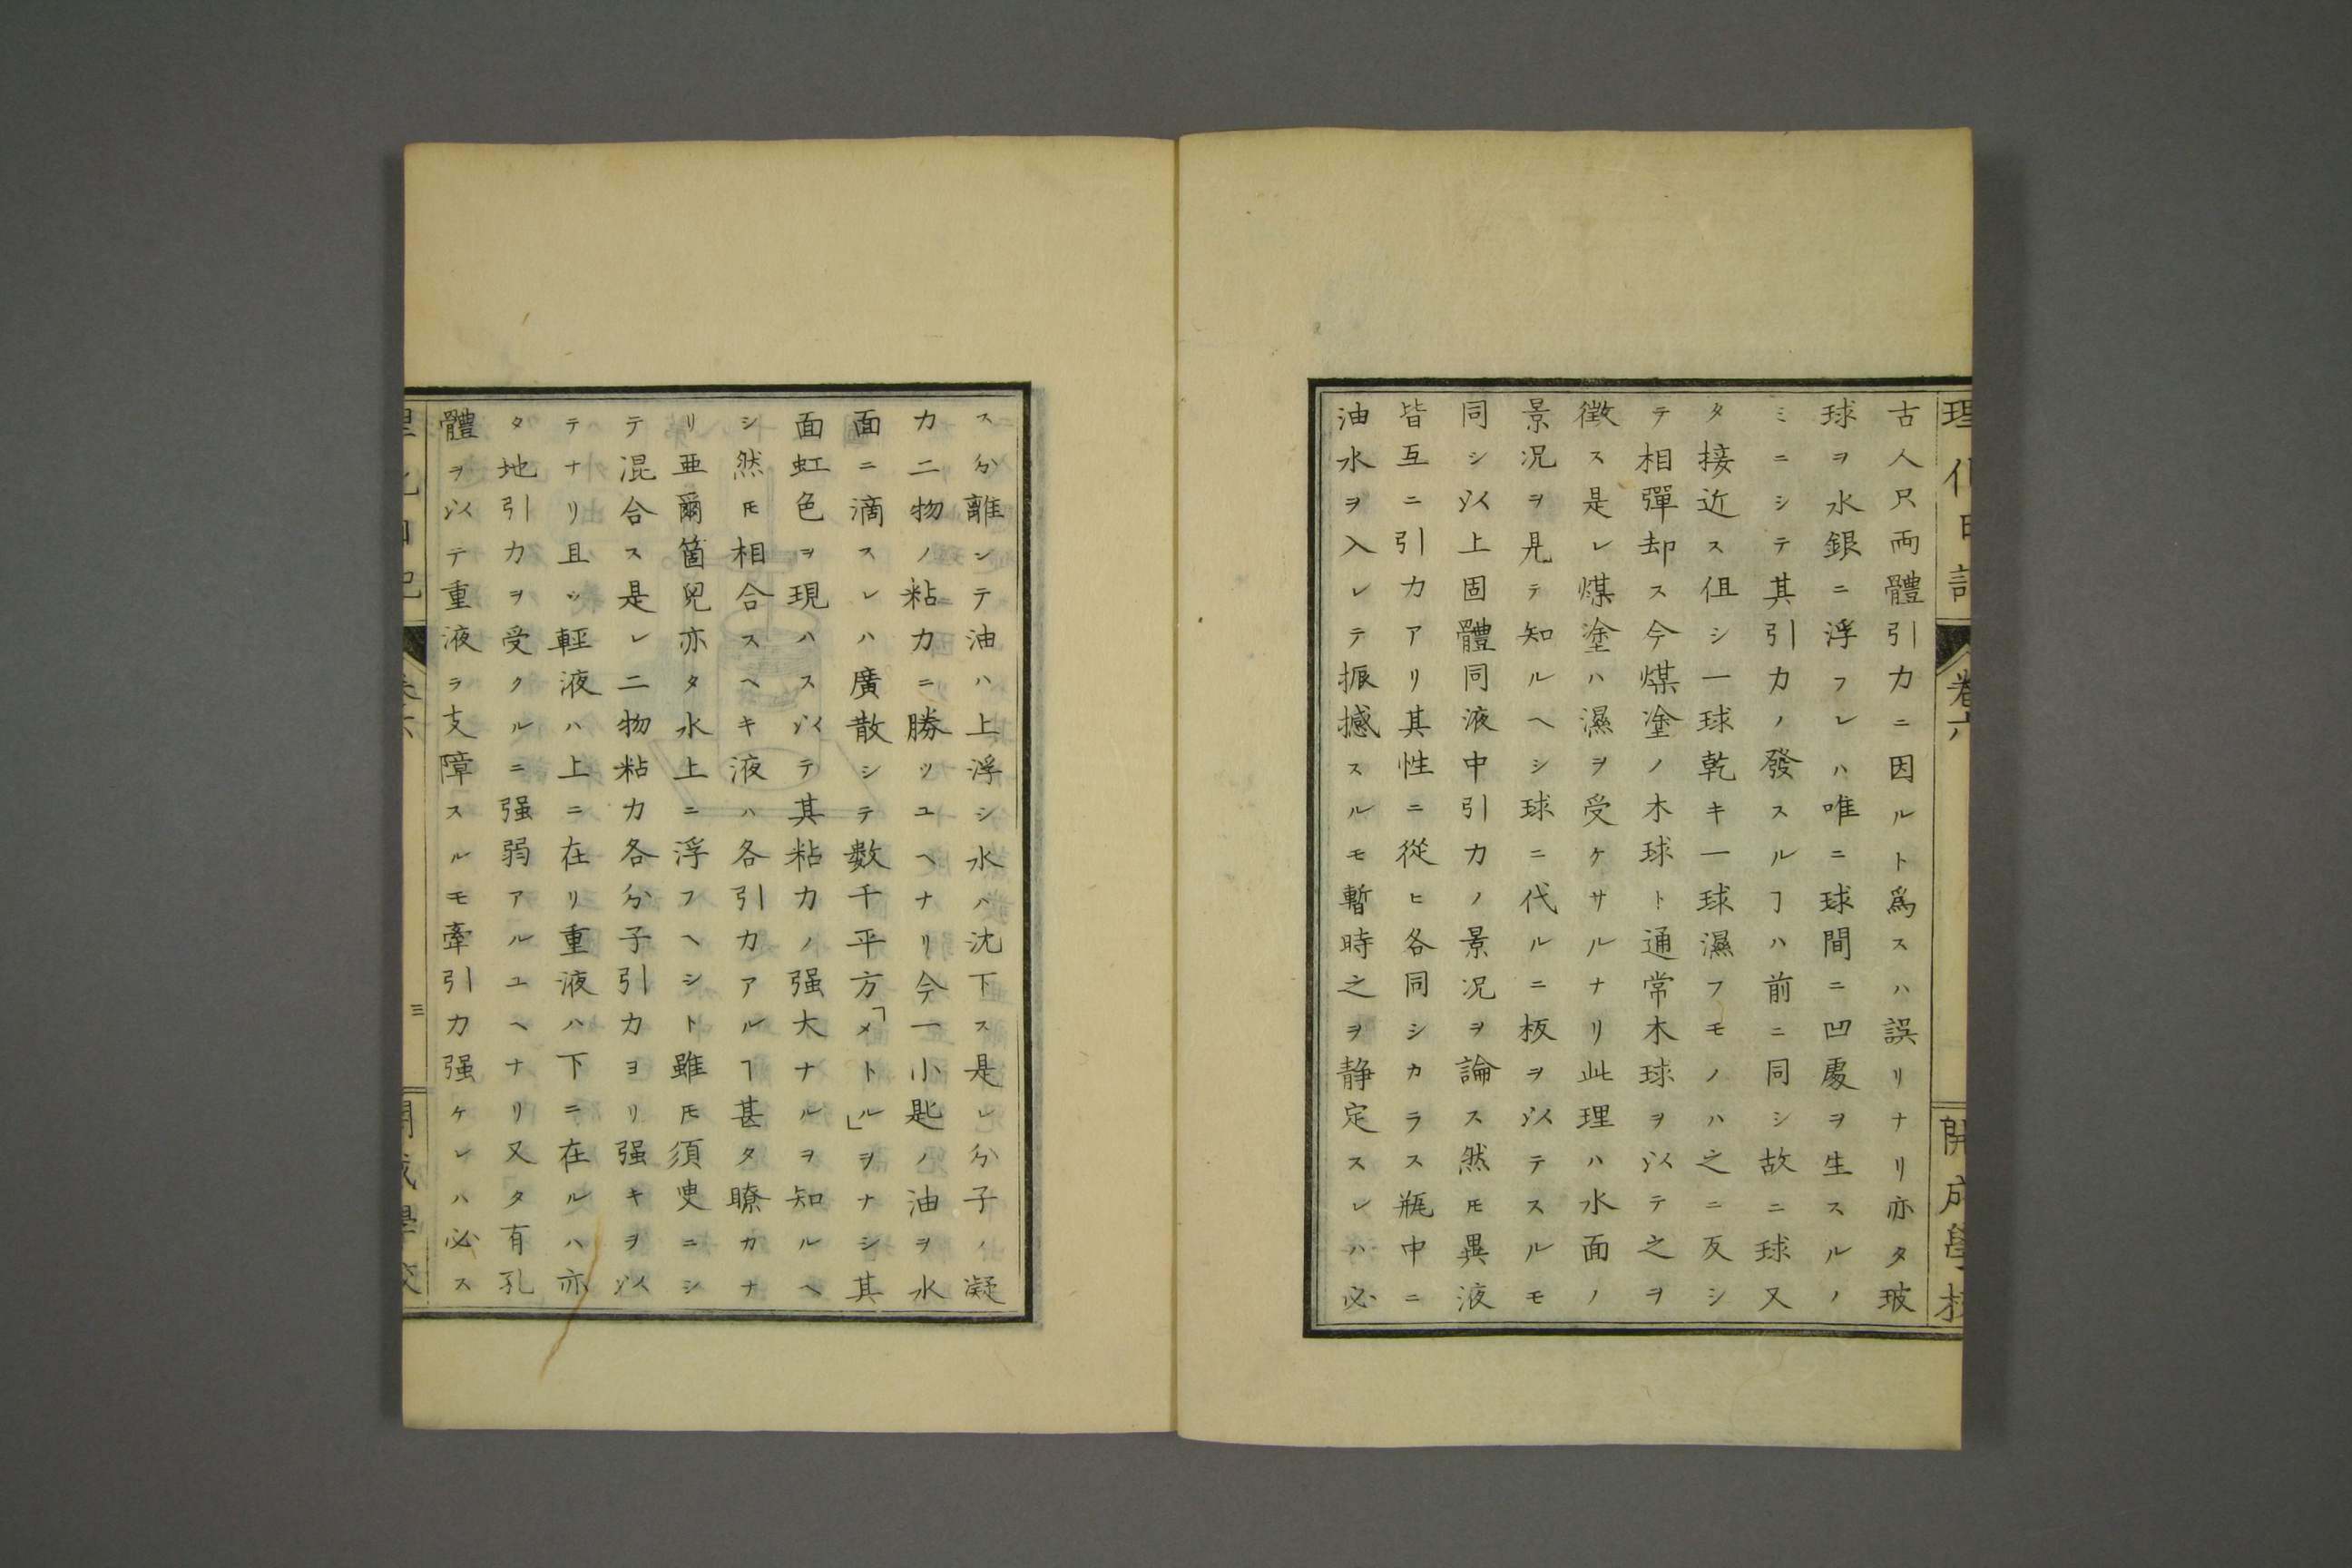 理化日記
卷六
開成學校
古人只両體引力ニ因ルト爲スハ誤リナリ亦タ玻
球ヲ水銀ニ浮フレハ唯ニ球間ニ凹處ヲ生スルノ
ミニシテ其引力ノ發スルヿハ前ニ同シ故ニ球又
タ接近ス伹シ一球乾キ一球濕フモノハ之ニ反シ
テ相彈却ス今煤塗ノ木球ト通常木球ヲ以テ之ヲ
徴ス是レ煤塗ハ濕ヲ受ケサルナリ此理ハ水面ノ
景况ヲ見テ知ルヘシ球ニ代ルニ板ヲ以テスルモ
同シ以上固體同液中引力ノ景况ヲ論ス然𪜈異液
皆互ニ引力アリ其性ニ從ヒ各同シカラス瓶中ニ
油水ヲ入レテ振撼スルモ暫時之ヲ静定スレハ必
ス分離シテ油ハ上浮シ水ハ沈下ス是レ分子ノ凝
力二物ノ粘力ニ勝ツユヘナリ今一小匙ノ油ヲ水
面ニ滴スレハ廣散シテ数千平方「メトル」ヲナシ其
面虹色ヲ現ハス以テ其粘力ノ强大ナルヲ知ルヘ
シ然𪜈相合スヘキ液ハ各引力アルヿ甚タ瞭カナ
リ亜爾箇兒亦タ水上ニ浮フヘシト雖𪜈須臾ニシ
テ混合ス是レ二物粘力各分子引力ヨリ强キヲ以
テナリ且ツ輕液ハ上ニ在リ重液ハ下ニ在ルハ亦
タ地引力ヲ受クルニ强弱アルユヘナリ又タ有孔
體ヲ以テ重液ヲ支障スルモ牽引力强ケレハ必ス
三